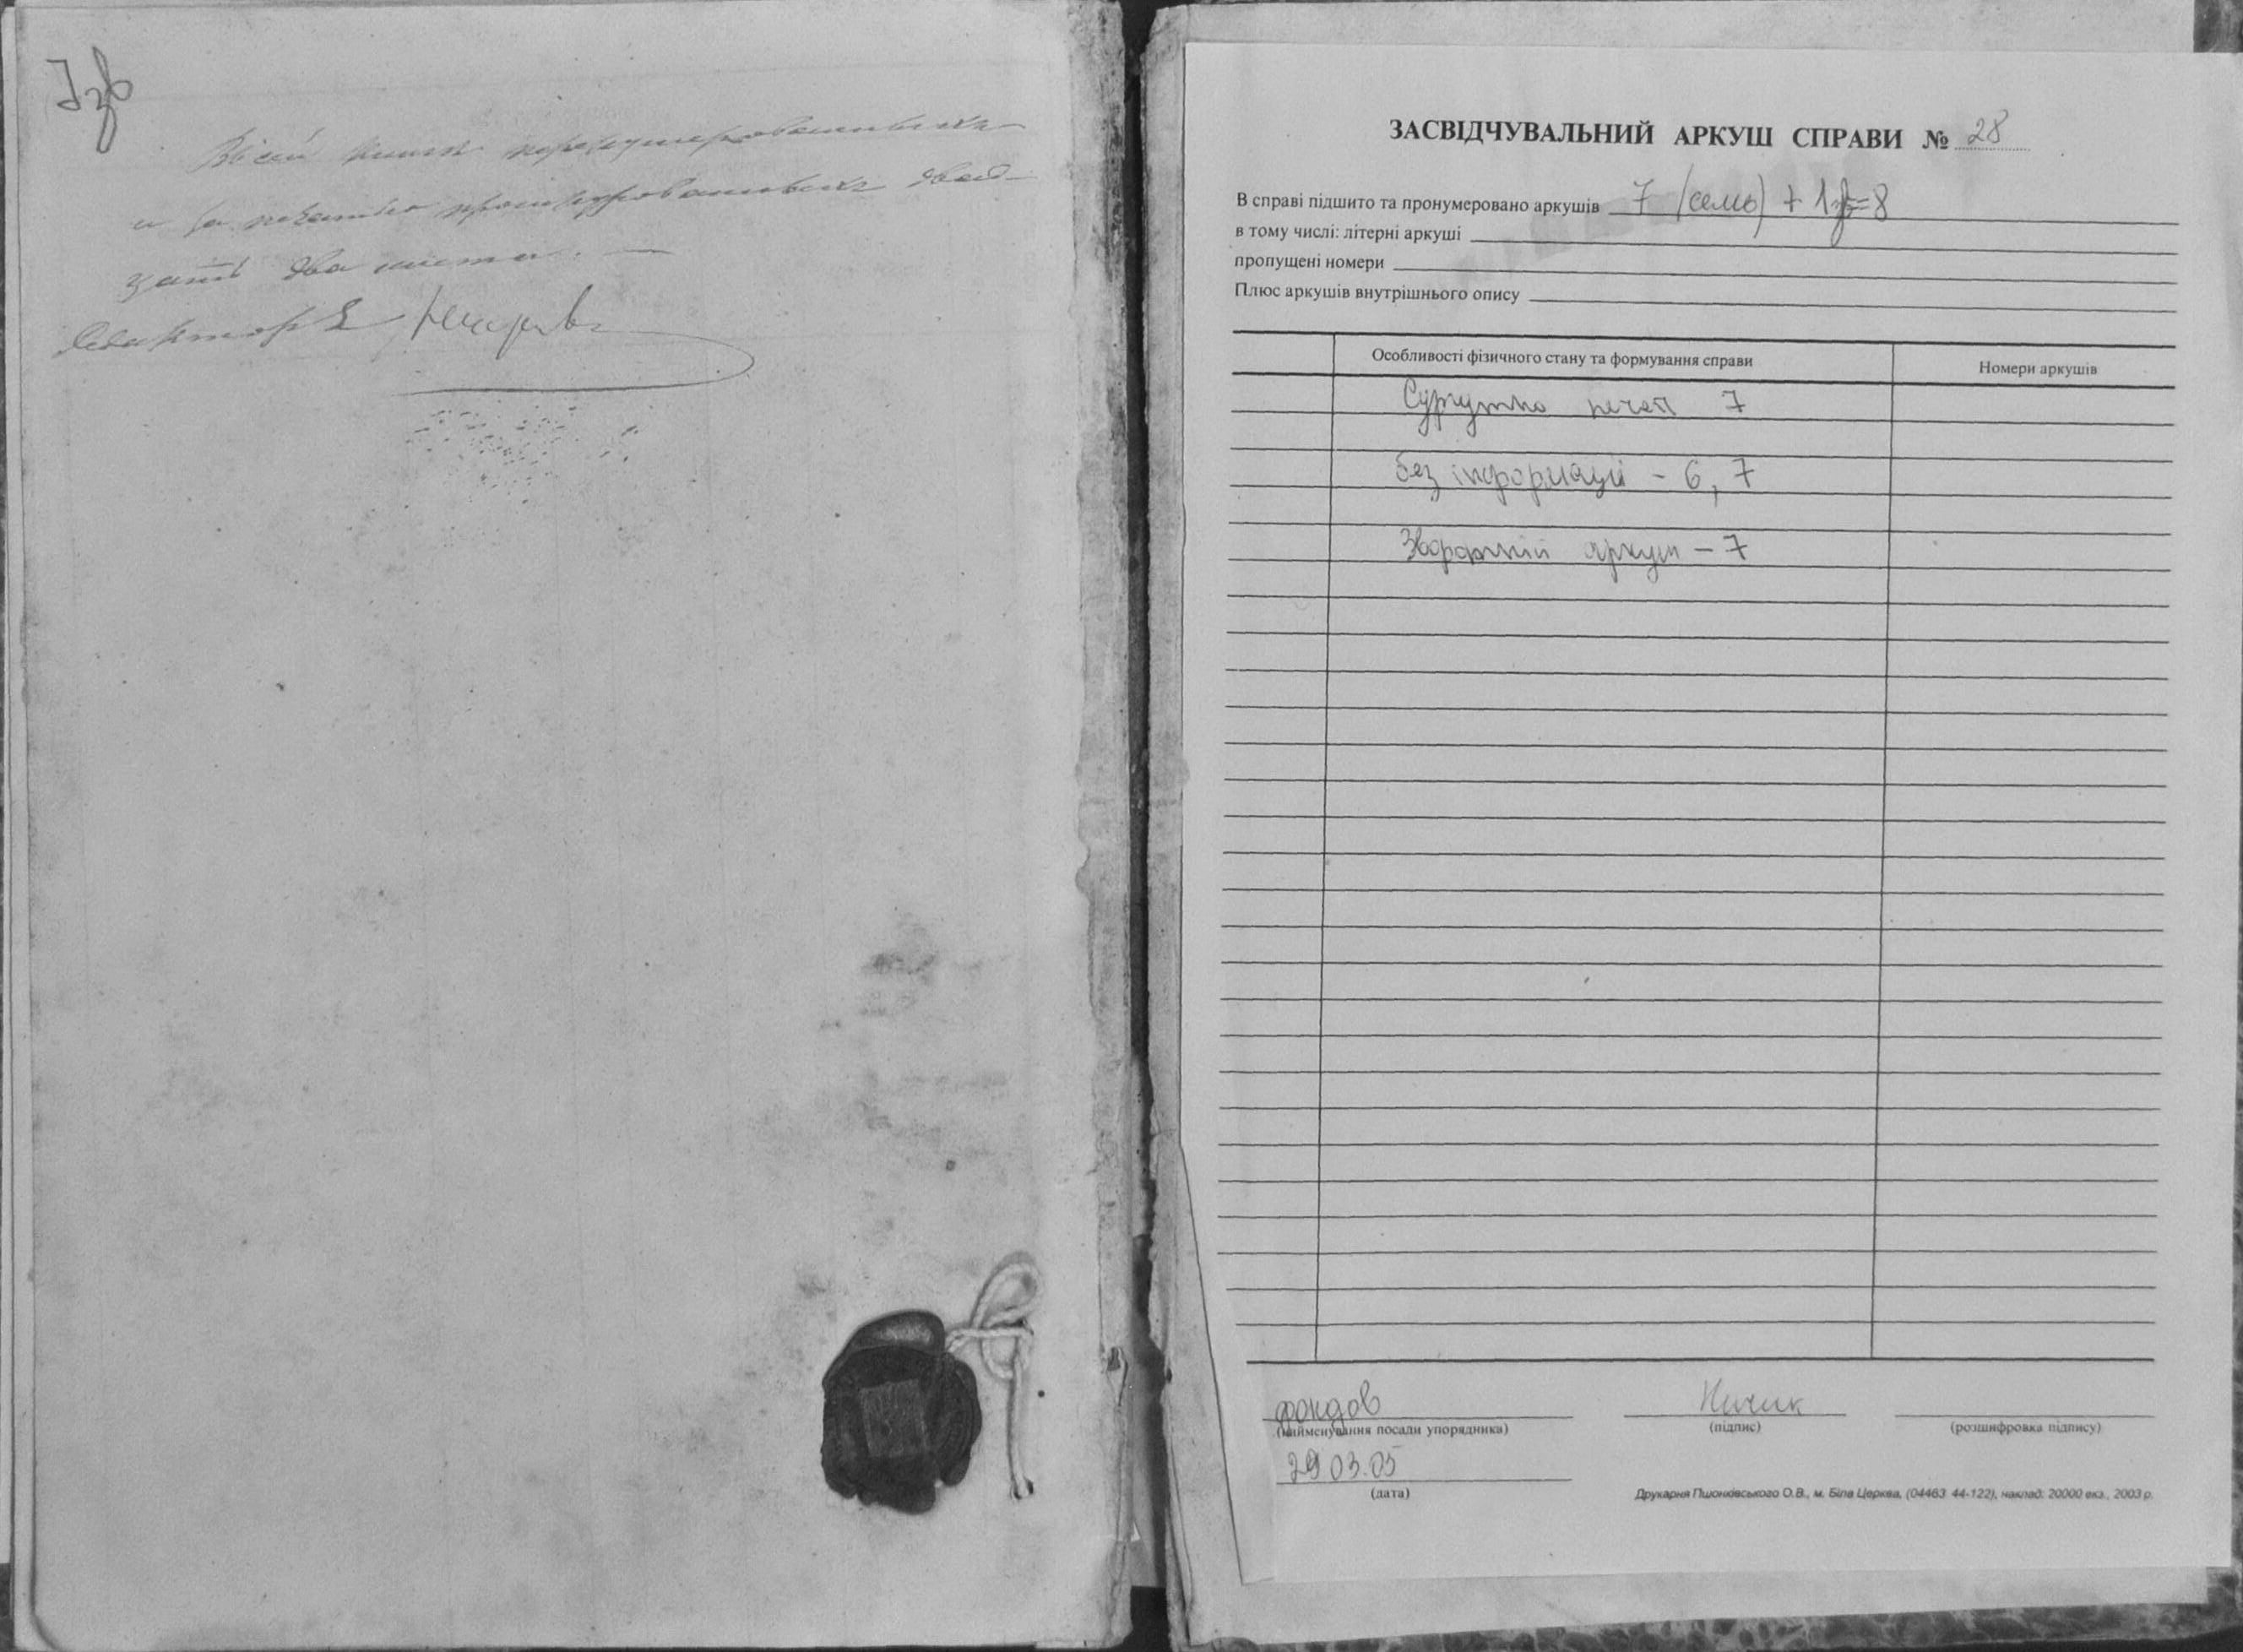 7зв
Въ сей книге перенумерованныхъ
и за печатью прошнурованныхъ двад-
цать два листа.
ЗАСВІДЧУВАЛЬНИЙ АРКУШ СПРАВИ № 28
В справі підшито та пронумеровано аркушів 7 (семь) + 1зв=8
в тому числі: літерні аркуші
пропущені номери
Плюс аркушів внутрішнього опису
Особливості фізичного стану та формування справи Номери аркушів
Сургучна печат 7
без інформації - 6, 7
Зворотній аркуш - 7
фондов Ничик
(найменування посади упорядника) (підпис) (розшифровка підпису)
29 03.05
(дата)
Друкарня Пшонківського О.В., м. Біла Церква, (04463 44-122), наклад: 20000 екз., 2003 р.